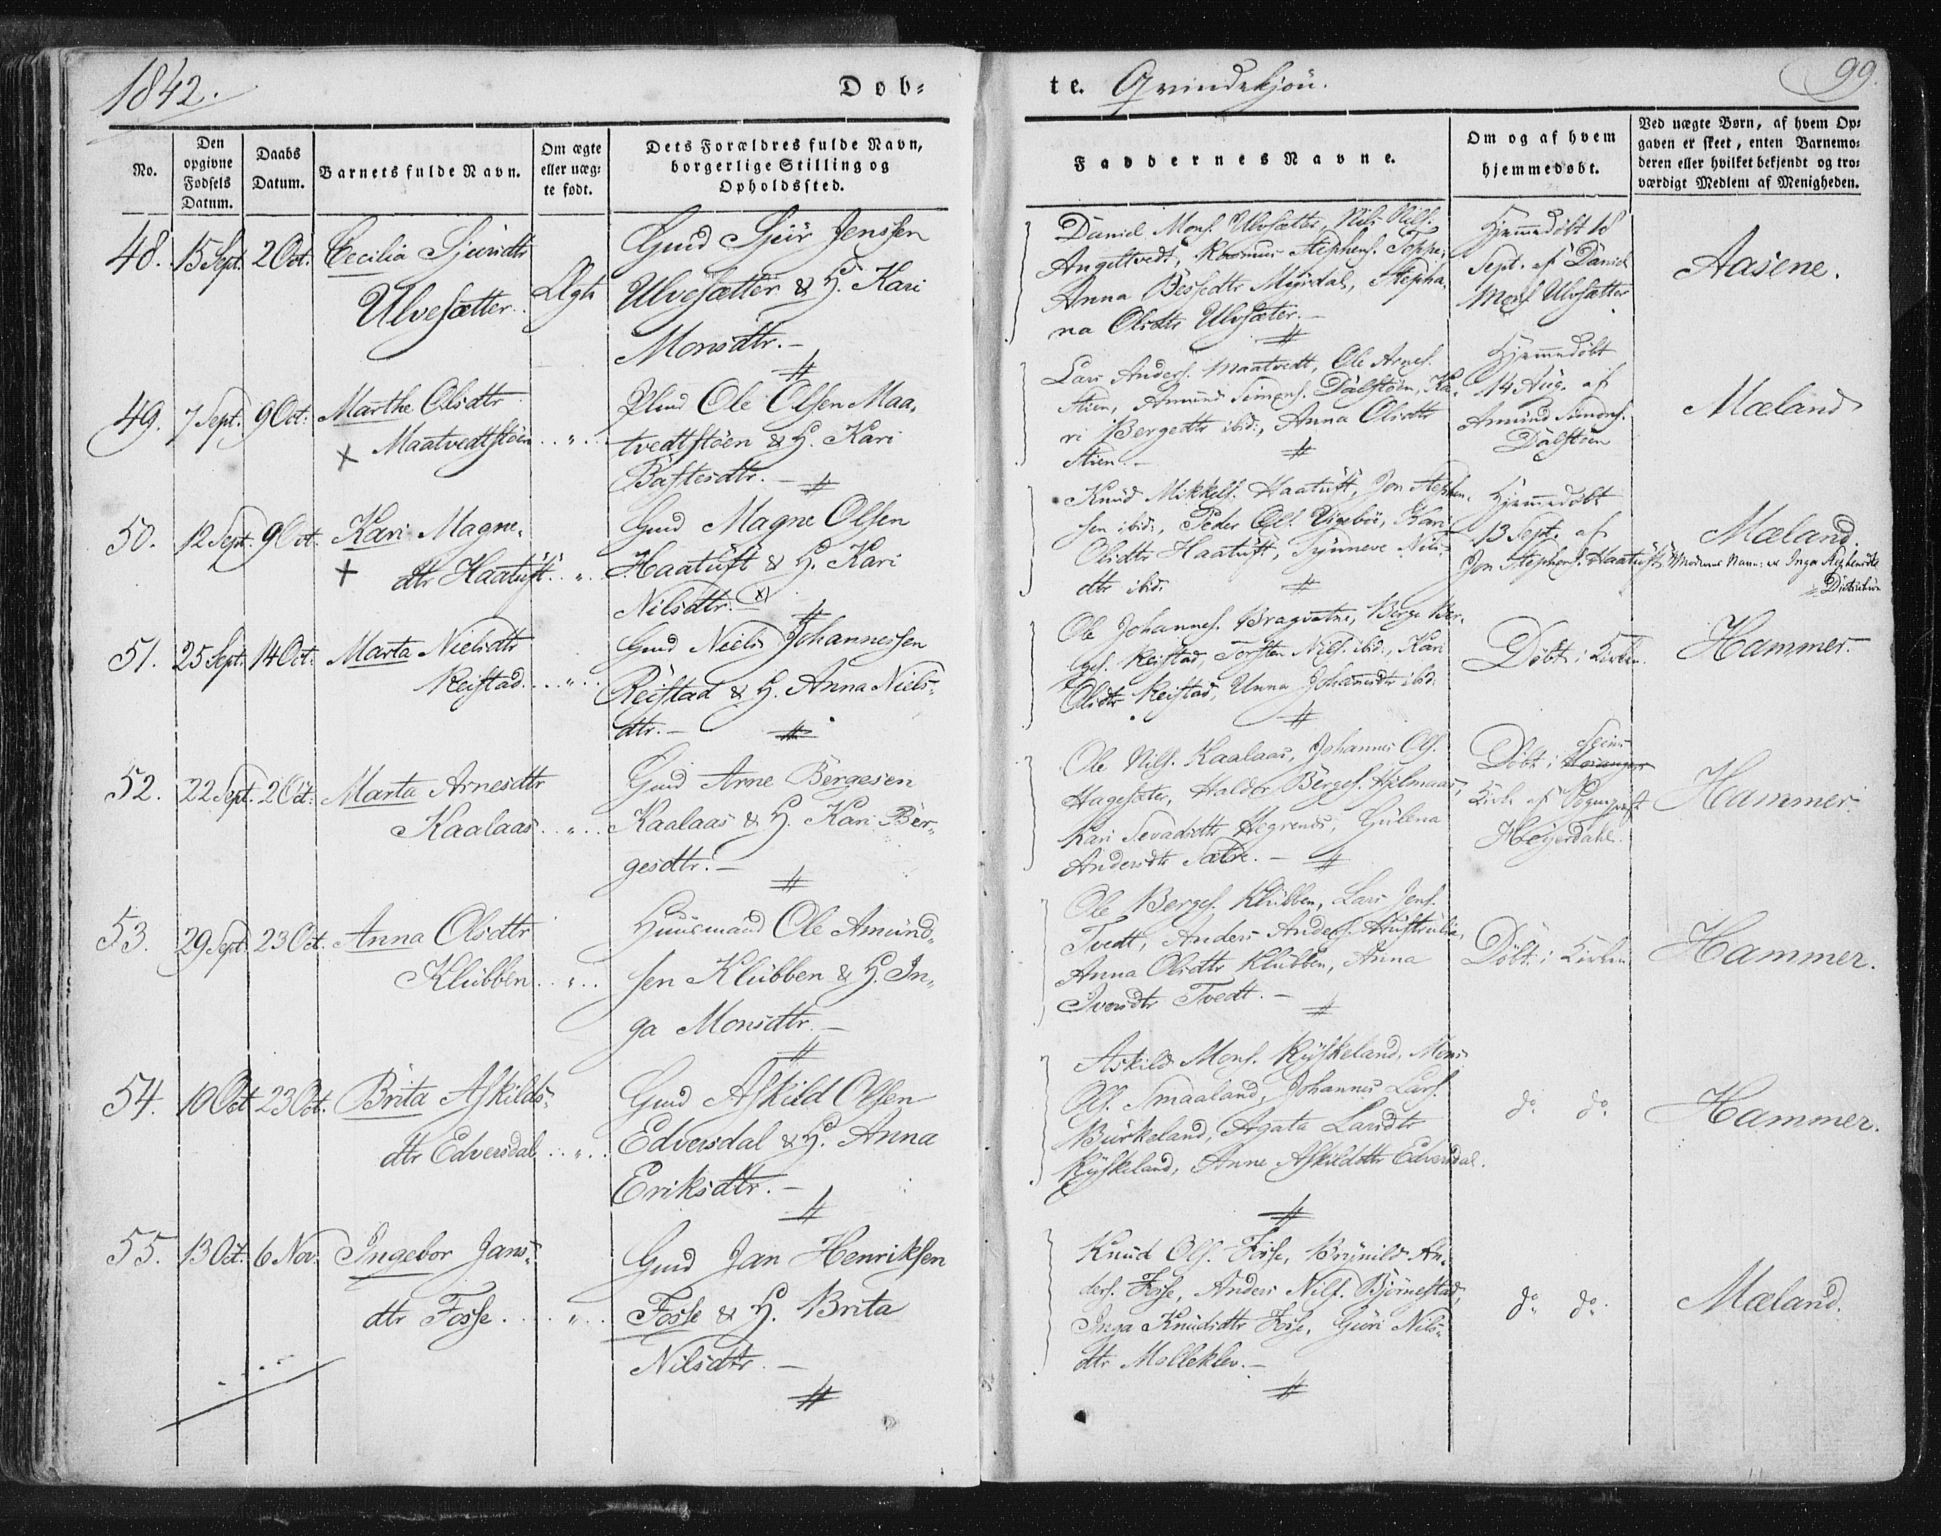 1842.
Døb-
te. Qvindekjøn.
99.
No.
Den opgivne Fødsels Datum.
Daabs Datum.
Barnets fulde Navn.
Om ægte eller uæg- te født.
Dets Forældres fulde Navn, borgerlige Stilling og Opholdssted.
Faddernes Navne.
Om og af hvem hjemmedøbt.
Ved uægte Børn, af hvem Op- gaven er skeet, enten Barnemo- deren eller hvilket bekjendt og tro- værdigt Medlem af Menigheden.
48. 15 Sept. 2 Oct. Cecilia Sjursdtr
Ulvesætter. Ægte
Gmd Sjur Jenssen
Ulvesætter & H. Kari
Monsdtr. -
Daniel Mons. Ulvsætter, Nils Nils.
Angeltvedt, Rasmus Stephens. Toppe,
Anna Besfedtr Mjøsdal, Stepha-
na Olsdtr Ulvsæter. -
Hjemmedøbt 18
Sept. af Daniel
Mons. Ulvsætter
Aasene.
49. 7 Sept. 9 Oct: Marthe Olsdtr
x Maatvedtstøen . . " . .
Plmd Ole Olsen Maa-
tvedtstøen & H. Kari
Bastesdtr. -
Lars Anders. Maatvedt, Ole Arnes.
Stien, Amund Simons. Dalstøen, Ka-
ri Bergedtr ibid:, Anna Olsdtr
Stien. -
Hjemmedøbt
14 Aug. af
Amund Simons.
Dalstøen
Mæland
50. 12 Sept. 9 Oct. Kari Magne-
x dtr Haatuft . . " . .
Gmd Magne Olsen
Haatuft & H. Kari
Nilsdtr. x)
Knud Mikkels. Haatuft, Jon Stephen-
sen ibid:, Peder Ols. Vigebøe, Kari
Olsdtr Haatuft, Synneve Nils-
dtr ibid.
Hjemmedøbt
13 Sept. af
Jon Stephens. Haatuft
Mæland.
x) Moderens Navn er Inga Stephensdtr
51. 25 Sept. 14 Oct: Marta Nielsdtr
Reistad . . . " . .
Gmd Neels Johannessen
Reistad & H. Anna Niels-
dtr. -
Ole Johannes. Bragvatne, Berge Ber-
ges. Reistad, Torsten Niels. ibid., Kari
Olsdtr Reistad, Unna Johannesdtr ibid.
Døbt i Kirken.
Hammer.
52. 22 Sept. 2 Oct: Marta Arnesdtr
Kaalaas . . " . .
Gmd Arne Bergesen
Kaalaas & H. Kari Ber-
gesdtr. -
Ole Nils. Kaalaas, Johannes Ols.
Hagesæter, Haldor Berges. Hjelmaas,
Kari Sevadsdtr Hegrenes, Gulena
Andersdtr Sætre. -
Døbt i Hosanger
Kirke af Sognepræst
Heyerdahl.
Hammer
53. 29 Sept. 23 Oct. Anna Olsdtr
Klubben . . " . .
Huusmand Ole Amund-
sen Klubben & H. In-
ga Monsdtr. -
Ole Berges. Klubben, Lars Jens.
Tvedt, Anders Anders.
Anna Olsdtr Klubben, Anna
Iversdtr Tvedt. -
Døbt i Kirken
Hammer.
54. 10 Oct 23 Oct. Brita Askilds-
dtr Edversdal . . " . .
Gmd Askild Olsen
Edversdal & H. Anna
Eriksdtr. -
Askild Mons. Ryskeland, Mons
Ols. Smaaland, Johannes Lars.
Burkeland, Agata Larsdtr
Ryskeland, Anne Askildsdtr Edversdal.
do do
Hammer.
55. 13 Oct. 6 Nov. Ingebor Jans-
dtr Fosse . . . . " . .
Gmd Jan Henriksen
Fosse & H. Brita
Nilsdtr. -
Knud Ols. Fosse, Brynild An-
ders. Fosse, Anders Nils. Bjørnestad,
Inga Knudsdtr Fosse, Guri Nils-
dtr Molleklev. -
do do.
Mæland.